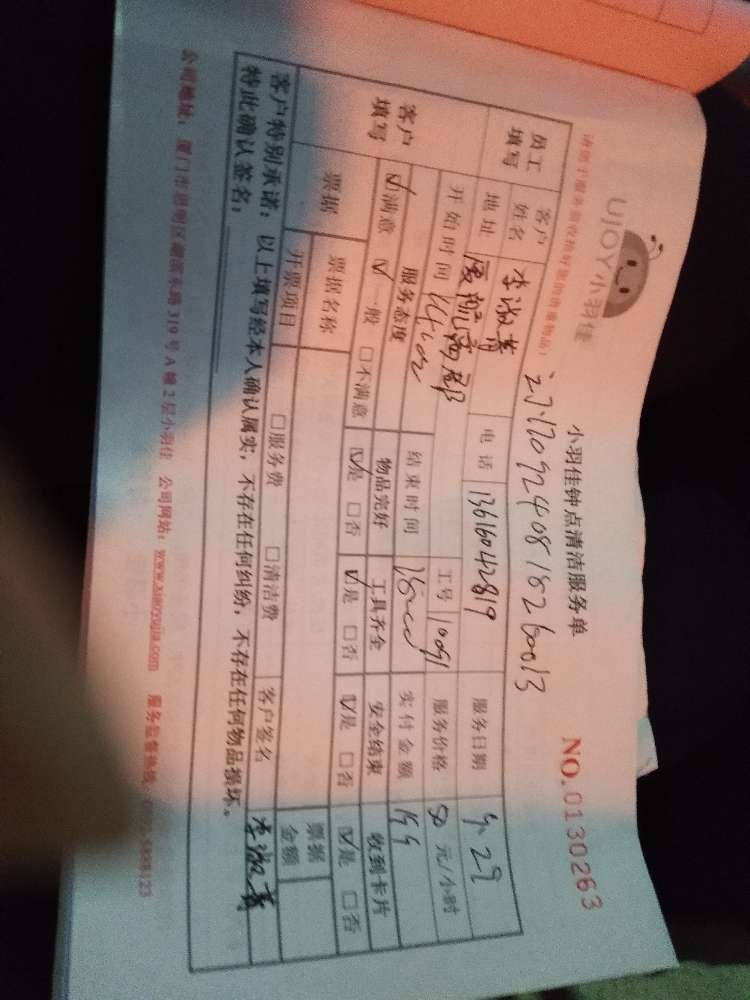 UJOY小羽佳
小羽佳钟点清洁服务单
NO.0130263
请给予服务前收拾好您的贵重物品!
271709240818260013
员工填写 客户姓名 李淑菁 电话 13616042819 服务日期 9.29
地址 厦航高郡 工号 10091 服务价格 50 元/小时
客户填写 开始时间 结束时间 实付金额
服务态度 物品完好 工具齐全 安全结束 收到卡片
☑满意 ☑一般 □不满意 ☑是 □否 ☑是 □否 ☑是 □否 ☑是 □否
票据 票据名称 票据金额
开票项目 □服务费 □清洁费 客户签名 李淑菁
客户特别承诺:以上填写经本人确认属实,不存在任何纠纷,不存在任何物品损坏。
特此确认签名:
公司地址:厦门市思明区湖滨东路319号A幢2层小羽佳 公司网站:www.xiaoyujia.com 服务监督热线: